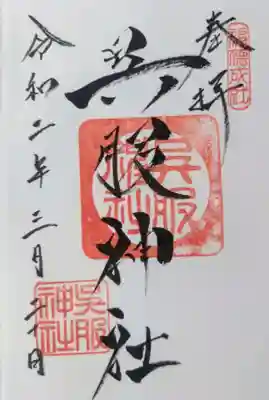 奉拝
呉服神社
令和二年三月二十日
呉服神社
呉服神社